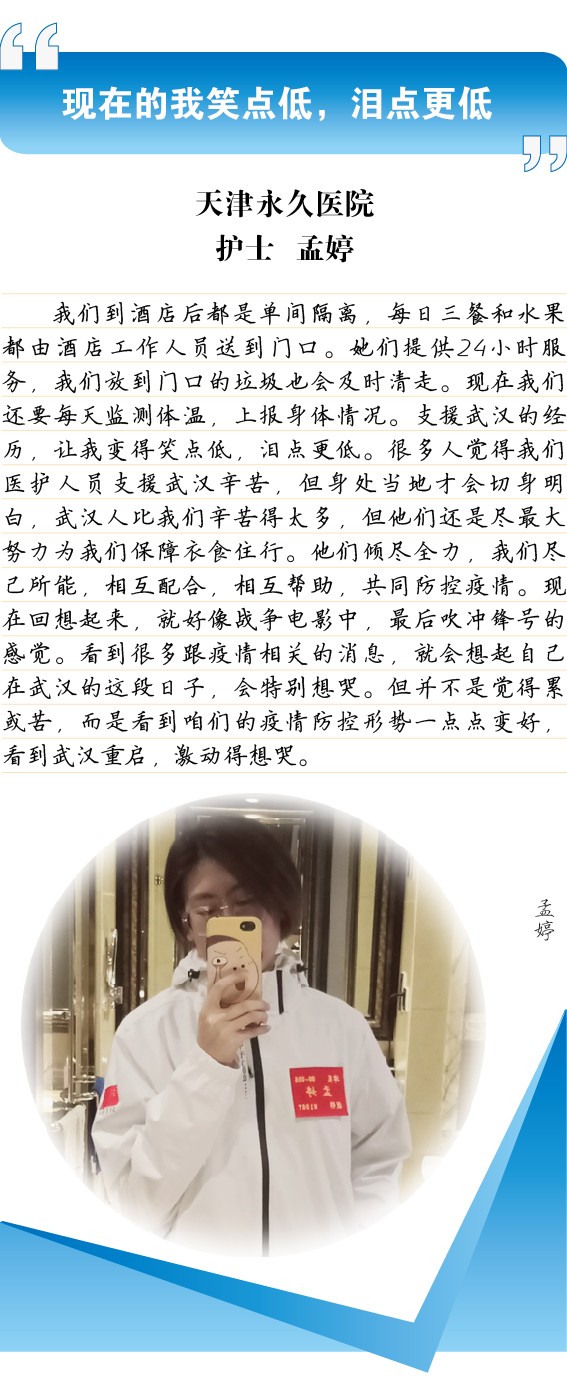 现在的我笑点低，泪点更低
天津永久医院
护士 孟婷
我们到酒店后都是单间隔离，每日三餐和水果
都由酒店工作人员送到门口。她们提供24小时服
务，我们放到门口的垃圾也会及时清走。现在我们
还要每天监测体温，上报身体情况。支援武汉的经
历，让我变得笑点低，泪点更低。很多人觉得我们
医护人员支援武汉辛苦，但身处当地才会切身明
白，武汉人比我们辛苦得太多，但他们还是尽最大
努力为我们保障衣食住行。他们倾尽全力，我们尽
己所能，相互配合，相互帮助，共同防控疫情。现
在回想起来，就好像战争电影中，最后吹冲锋号的
感觉。看到很多跟疫情相关的消息，就会想起自己
在武汉的这段日子，会特别想哭。但并不是觉得累
或苦，而是看到咱们的疫情防控形势一点点变好，
看到武汉重启，激动得想哭。
孟婷
孟婷